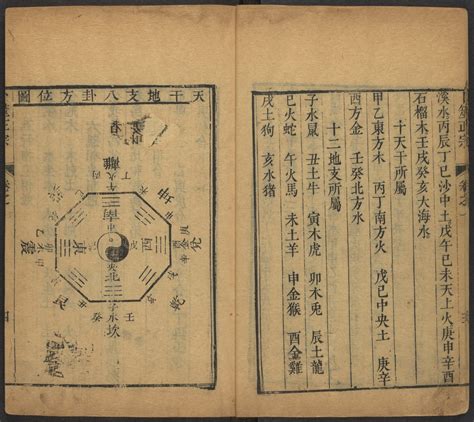 溪水丙辰丁巳沙中土戊午己未天上火庚申辛酉
石榴木壬戌癸亥大海水
十天干所屬
甲乙東方木 丙丁南方火 戊己中央土 庚辛
西方金 壬癸北方水
十二地支所屬
子水鼠 丑土牛 寅木虎 卯木兎 辰土龍
巳火蛇 午火馬 未土羊 申金猴 酉金雞
戌土狗 亥水猪
天干地支八卦方位圖
離
坤
南
兌
西
東
震
北
乾
子水坎
壬
癸